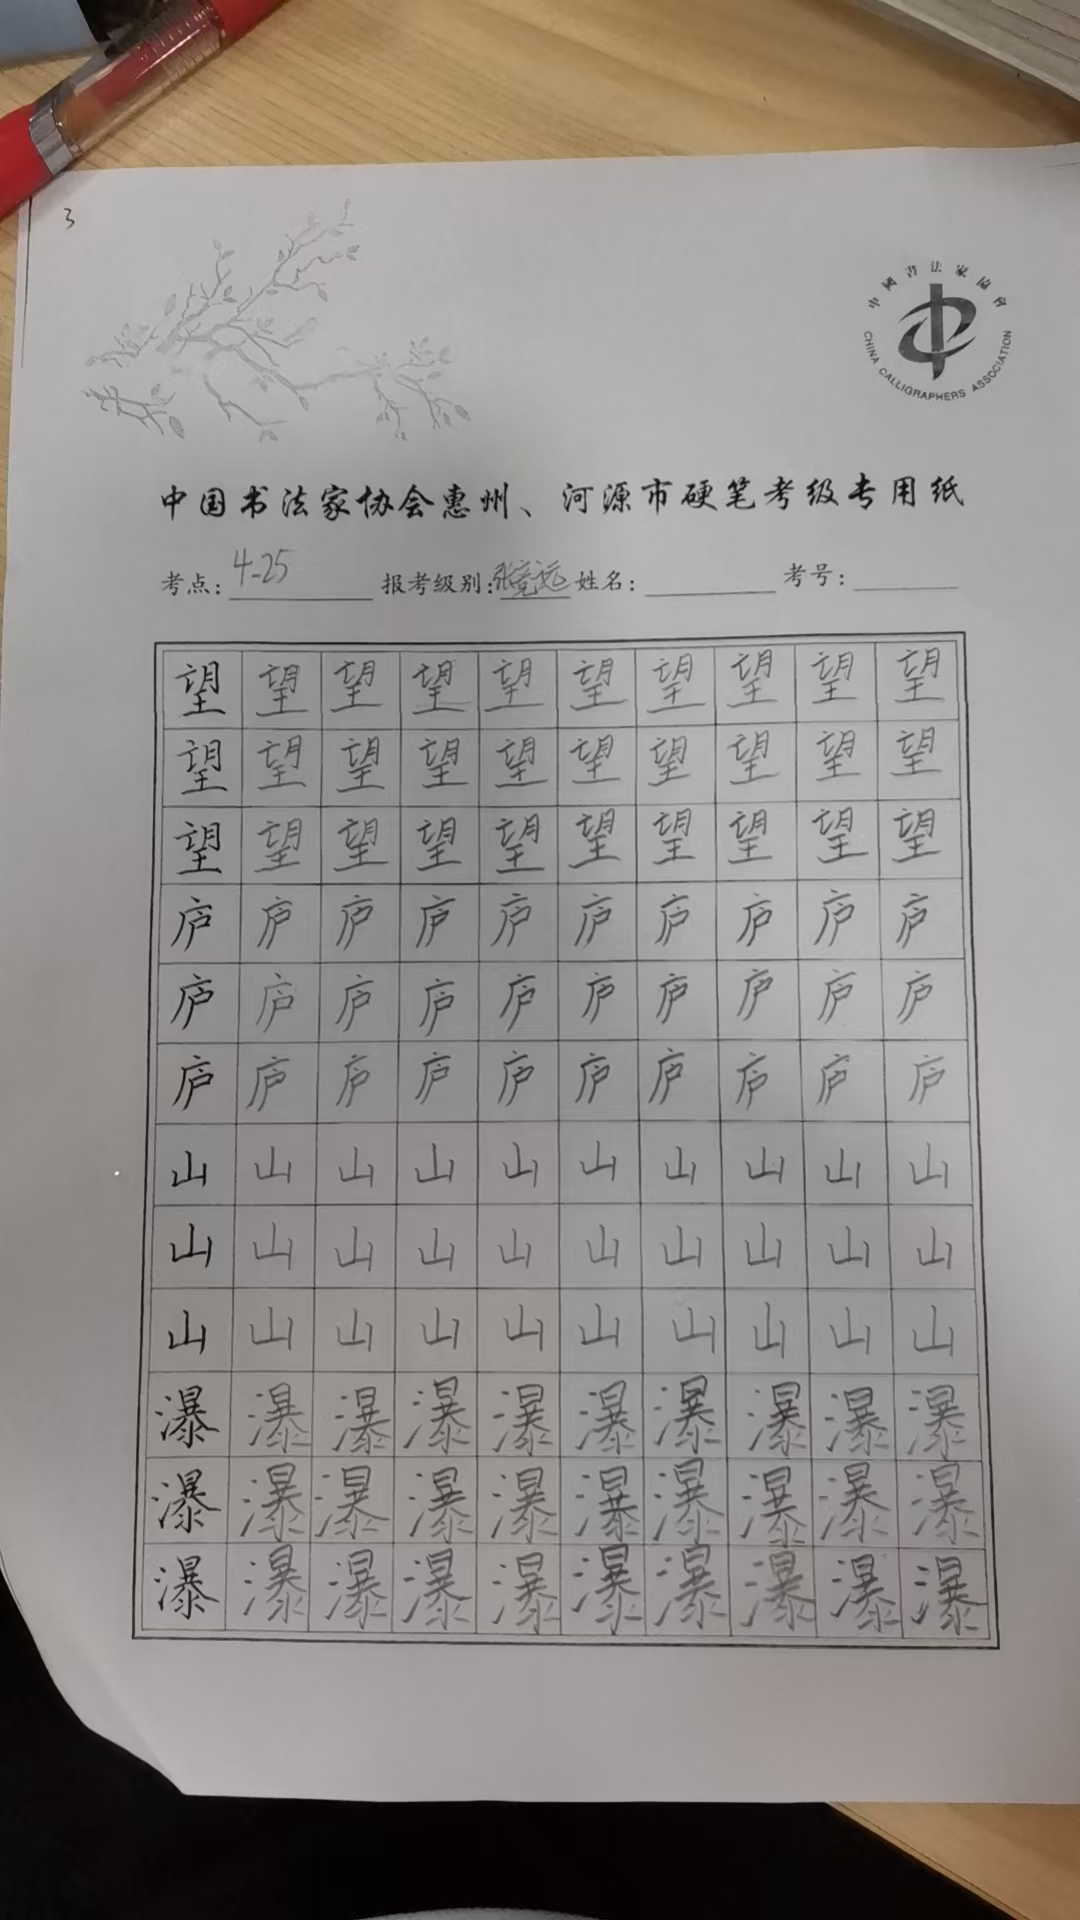 3
中國書法家協會
CHINA CALLIGRAPHERS ASSOCIATION
中国书法家协会惠州、河源市硬笔考级专用纸
考点: 4-25 报考级别: 张竞远 姓名: 考号:
望望望望望望望望望望
望望望望望望望望望望
望望望望望望望望望望
庐庐庐庐庐庐庐庐庐庐
庐庐庐庐庐庐庐庐庐庐
庐庐庐庐庐庐庐庐庐庐
山山山山山山山山山山
山山山山山山山山山山
山山山山山山山山山山
瀑瀑瀑瀑瀑瀑瀑瀑瀑瀑
瀑瀑瀑瀑瀑瀑瀑瀑瀑瀑
瀑瀑瀑瀑瀑瀑瀑瀑瀑瀑